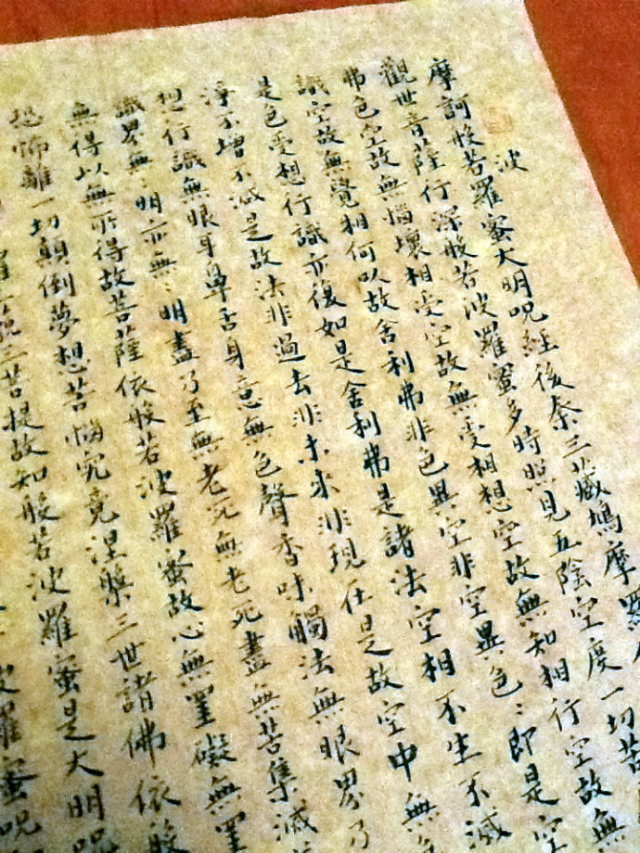 波
摩訶般若羅蜜大明呪經後秦三藏鳩摩羅
觀世音薩行深般若波羅蜜多時照見五陰空度一切苦
弗色空故無惱壞相受空故無受相想空故無知相行空故無
識空故無覺相何以故舍利弗非色異空非空異色〻即是空
是色受想行識亦復如是舍利弗是諸法空相不生不滅
淨不增不減是故法非過去非未來非現在是故空中無
想行識無眼耳鼻舌身意無色聲香味觸法無眼界乃
識界無〻明亦無〻明盡乃至無老死無老死盡無苦集滅
無得以無所得故菩薩依般若波羅蜜故心無罣礙無罣
恐怖離一切顛倒夢想苦惱究竟涅槃三世諸佛依般
藐三菩提故知般若波羅蜜是大明呪
波羅蜜呪